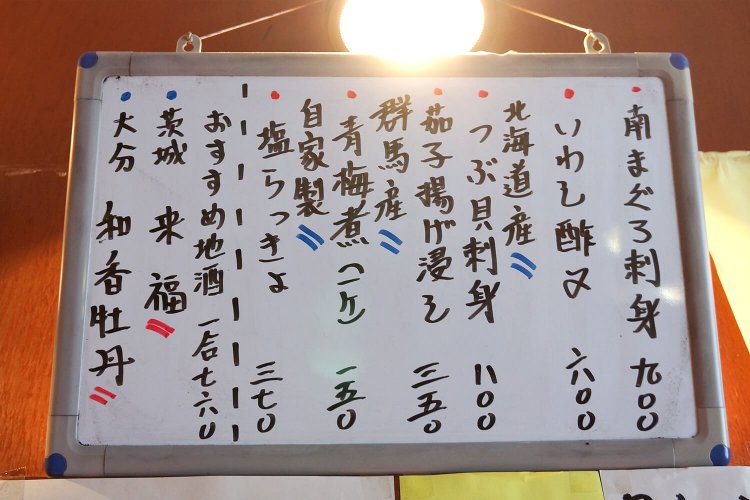 南まぐろ刺身 九〇〇
いわし酢〆 六〇〇
北海道産
つぶ貝刺身 八〇〇
茄子揚げ浸し 三五〇
群馬産
青梅煮(一ケ) 一五〇
自家製
塩らっきょ 三七〇
おすすめ地酒 一合七六〇
茨城 来福
大分 和香牡丹